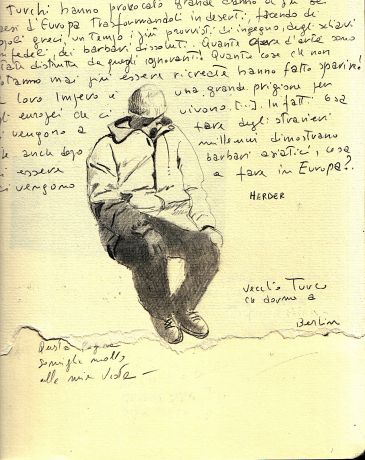 Turchi hanno provocato grande danno ai più bei
paesi d'Europa trasformandoli in deserti, facendo di
popoli greci, un tempo i più provvisti di ingegno, degli schiavi
infedeli, dei barbari dissoluti. Quante opere d'arte sono
state distrutte da quegli ignoranti! Quante cose che non
potranno mai più essere ricreate hanno fatto sparire!
Il loro Impero è una grande prigione per
gli europei che ci vivono. [...] Infatti cosa
vengono a fare degli stranieri
anche dopo millenni dimostrano
essere barbari asiatici, cosa
vengono a fare in Europa?
HERDER
vecchio Turco
che dorme a
Berlin
Questa pagina
somiglia molto
alla mia vita –